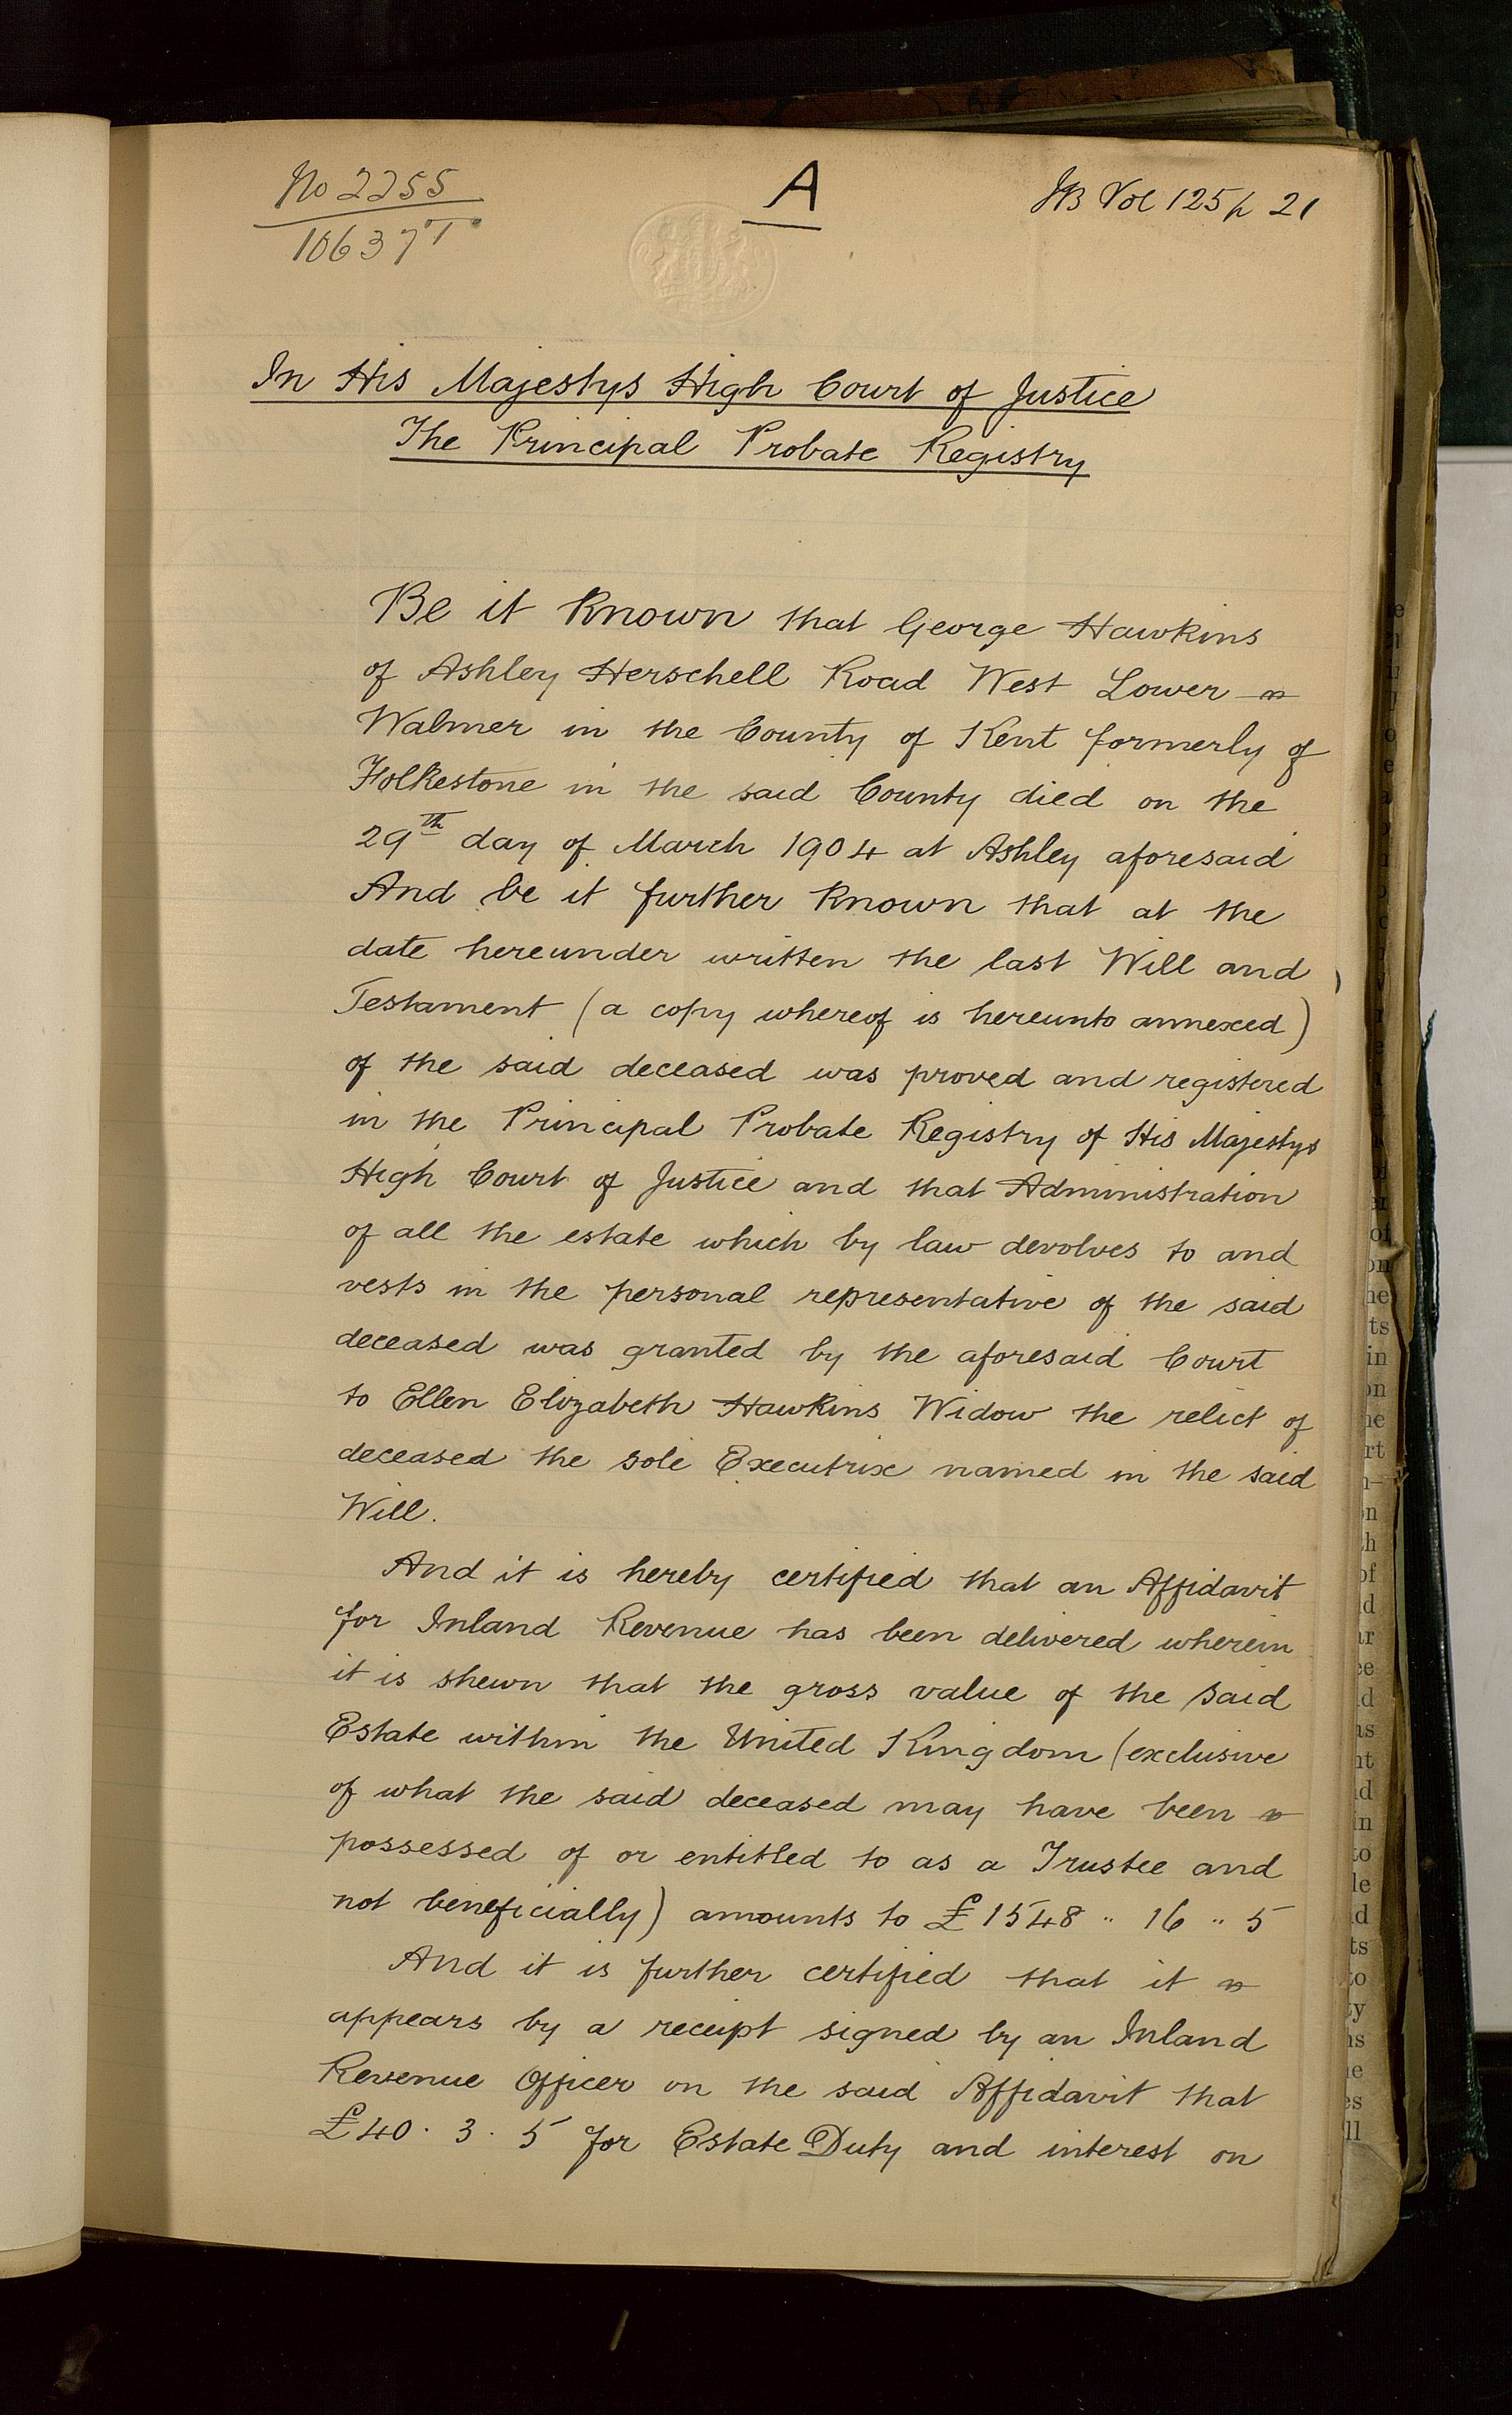 No 2255
A
JB Vol 125 p 21
10637 T
In His Majestys High Court of Justice
The Principal Probate Registry
Be it Known that George Hawkins
of Ashley Herschell Road West Lower
Walmer in the County of Kent formerly of
Folkestone in the said County died on the
29th day of March 1904 at Ashley aforesaid
And be it further Known that at the
date hereunder written the last Will and
Testament (a copy whereof is hereunto annexed)
of the said deceased was proved and registered
in the Principal Probate Registry of His Majestys
High Court of Justice and that Administration
of all the estate which by law devolves to and
vests in the personal representative of the said
deceased was granted by the aforesaid Court
to Ellen Elizabeth Hawkins Widow the relict of
deceased the sole Executrix named in the said
Will.
And it is hereby certified that an Affidavit
for Inland Revenue has been delivered wherein
it is shewn that the gross value of the said
Estate within the United Kingdom (exclusive
of what the said deceased may have been
possessed of or entitled to as a Trustee and
not beneficially) amounts to £1548 " 16 " 5
And it is further certified that it
appears by a receipt signed by an Inland
Revenue Officer on the said Affidavit that
£40. 3. 5 for Estate Duty and interest on